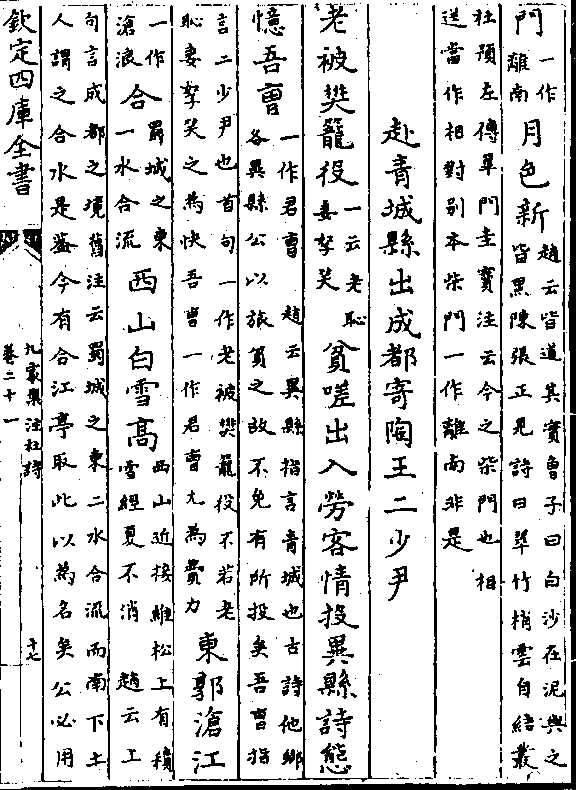 門一作離南月色新趙云皆道其實魯子曰白沙在泥與之皆黒陳張正見詩曰翠竹梢雲自結叢
杜預左傳蓽門圭竇注云今之柴門也相送當作相對别本柴門一作離南非是
赴青城縣出成都寄陶王二少尹
老被樊籠役一云老恥妻孥笑貧嗟出入勞客情投異縣詩態
憶吾曹一作君曹趙云異縣指言青城也古詩他鄉各異縣公以旅貧之故不免有所投矣吾曹指
言二少尹也首句一作老被樊籠役不若老恥妻孥笑之為快吾曹一作君曹尤為費力東郭滄江
一作滄浪合蜀城之東一水合流西山白雪高西山近接維松上有積雪經夏不消趙云上
句言成都之境舊注云蜀城之東二水合流而南下土人謂之合水是蓋今有合江亭取此以為名矣公必用
欽定四庫全書
九家集注杜詩
卷二十一
十七